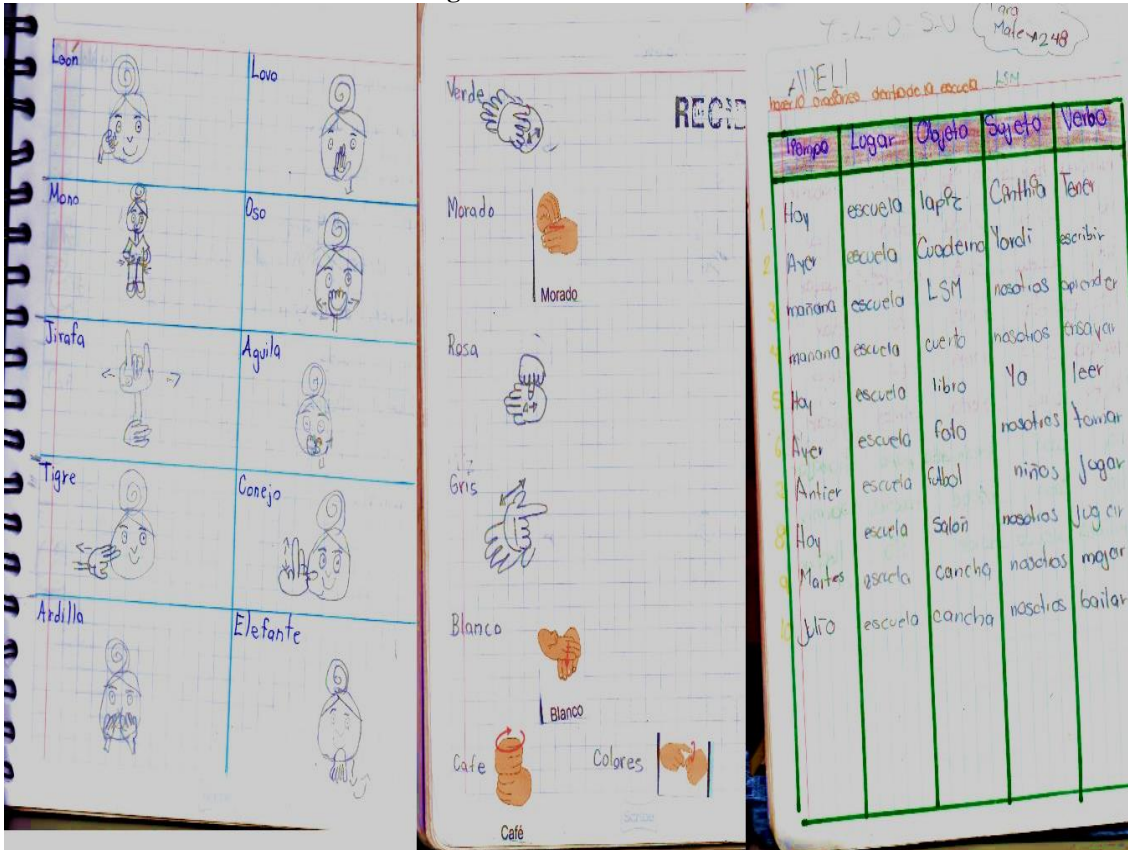 León Lovo
Mono Oso
Jirafa Aguila
Tigre Conejo
Ardilla Elefante
Verde
RECIB
Morado
Morado
Rosa
Gris
Blanco
Blanco
Cafe Colores
Café
T-L-O-S-V
Para
Mate
248
hacer 10 oraciones dentro de la escuela LSM
Tiempo Lugar Objeto Sujeto Verbo
1. Hoy escuela lapiz Cinthia Tener
2 Ayer escuela Cuaderno Yordi escribir
3 mañana escuela LSM nosotros aprender
4 manana escuela cuento nosotros ensayar
5 Hoy escuela libro Yo leer
6 Ayer escuela foto nosotros tomar
7 Antier escuela futbol niños Jugar
8 Hoy escuela Salón nosotros jugar
9 Martes escuela cancha nosotros mojar
10 Julio escuela cancha nosotros bailar